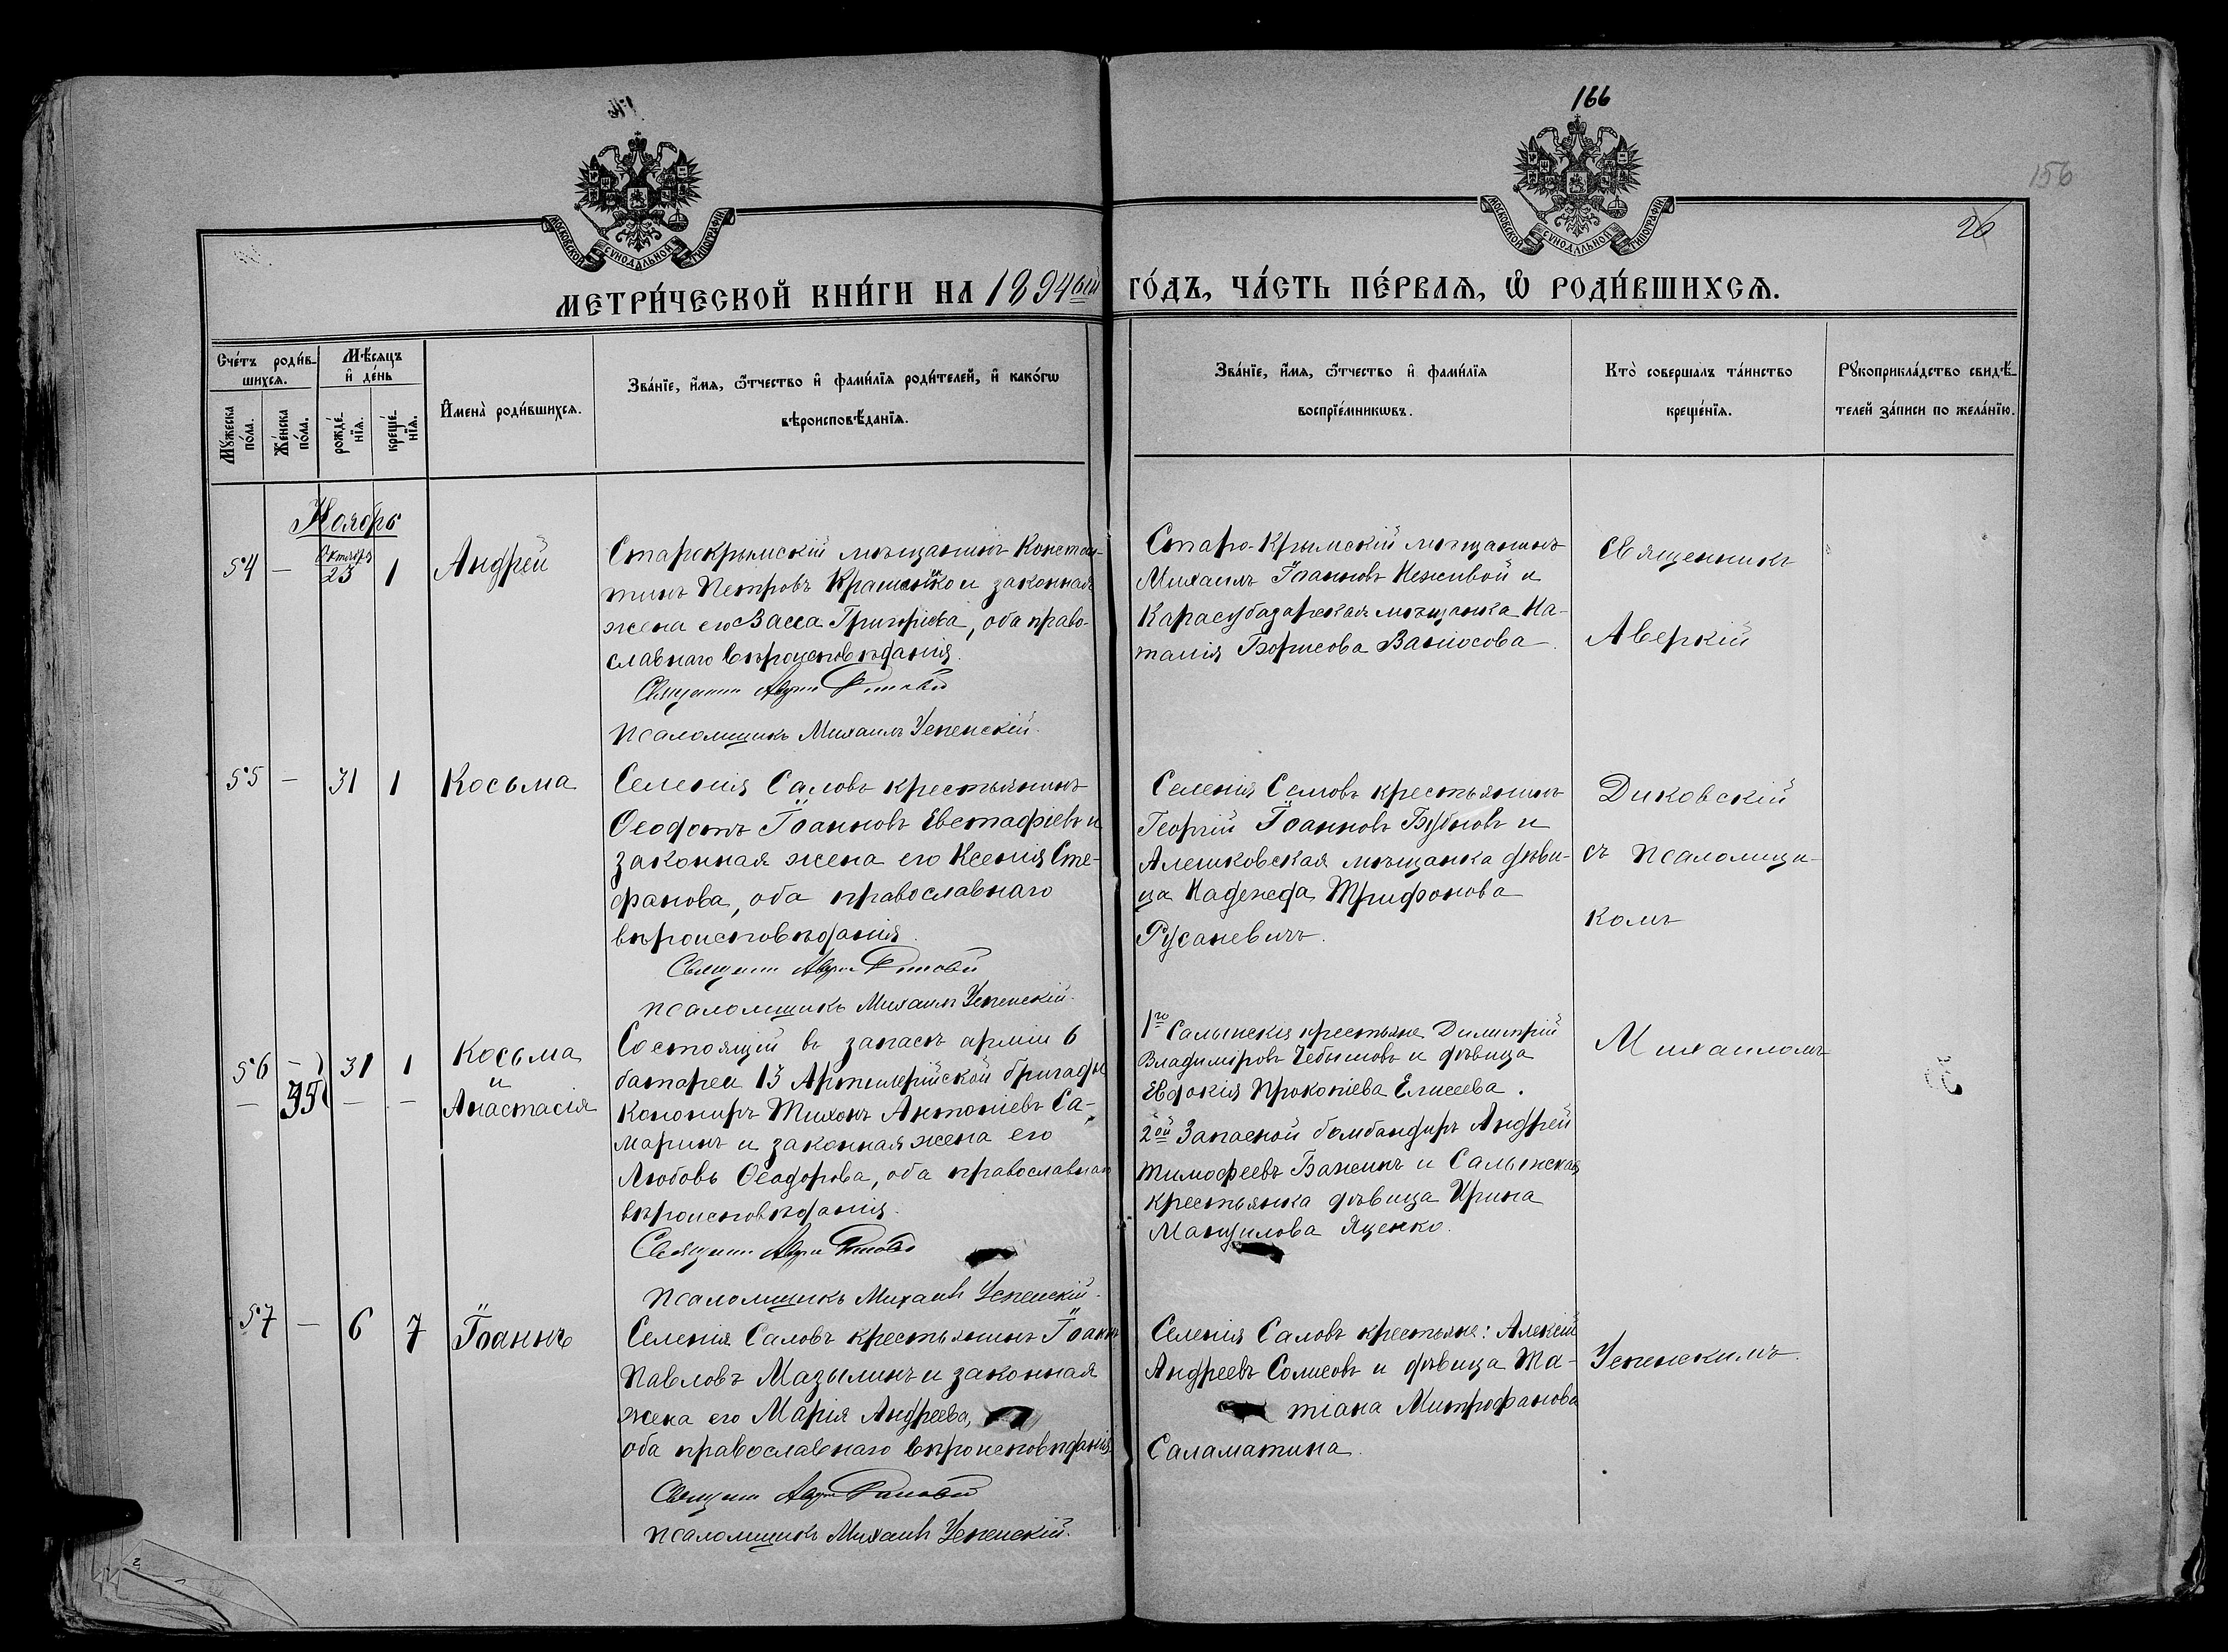 166
156
26
МОСКОВСКОЙ СѴНОДАЛЬНОЙ ТИПОГРАФІИ
МОСКОВСКОЙ СѴНОДАЛЬНОЙ ТИПОГРАФІИ
МЕТРИ́ЧЕСКОЙ КНИ́ГИ НА 1894ый ГО́ДЪ, ЧА́СТЬ ПЕ́РВАЯ, Ѡ РОДИ́ВШИХСЯ.
Сче́тъ роди́в-
шихся.
Мѣ́сяцъ
и҆ де́нь
Мꙋ́жеска
по́ла.
Же́нска
по́ла.
рожде́-
нїя.
креще́-
нїя.
И҆мена̀ роди́вшихся.
Зва́нїе, и҆́мя, ѻ҆́тчество и҆ фами́лїя роди́телей, и҆ како́гѡ
вѣроисповѣ́данїя.
Зва́нїе, и҆́мя, ѻ҆́тчество и҆ фами́лїя
воспрїе́мникѡвъ.
Кто̀ совершалъ та́инство
креще́нїя.
Рꙋкоприкла́дство свидѣ́-
телей за́писи по жела́нїю.
Ноябрь
54 — Октября 23 1 Андрей
Старокрымскій мѣщанинъ Констан-
тинъ Петровъ и законная
жена его Васса Григорьева, оба право-
славнаго вѣроисповѣданія.
Псаломщикъ Михаилъ Успенскій.
Старо-Крымскій мѣщанинъ
Михаилъ Іоанновъ Неживой и
Карасубазарская мѣщанка На-
талія Борисова
Священникъ
Аверкій
55 — 31 1 Косьма
Селенія Саловъ крестьянинъ
Ѳеодотъ Іоанновъ Евстафіевъ и
законная жена его Ксенія Сте-
фанова, оба православнаго
вѣроисповѣданія.
Псаломщикъ Михаилъ Успенскій.
Селенія Саловъ крестьянинъ
Георгій Іоанновъ Бубновъ и
Алешковская мѣщанка дѣви-
ца Надежда Трифонова
Русаневичъ.
Диковскій
съ псаломщи-
комъ
56 — 31 1 Косьма
и
— 35 — — Анастасія
Состоящій въ запасѣ арміи 6
батареи 13 Артилерійской бригады
Кононир Тихонъ Антоніевъ Са-
маринъ и законная жена его
Любовь Ѳеодорова, оба православнаго
вѣроисповѣданія.
Псаломщикъ Михаилъ Успенскій.
1го Салынскія крестьяне Димитрій
Владиміровъ Чебышовъ и дѣвица
Евдокія Прокопіева Елисеева.
2ой Запасной бомбандиръ Андрей
Тимофеевъ Баженъ и Салынская
крестьянка дѣвица Ирина
Мануилова Яценко.
Михаиломъ
57 — 6 7 Іоаннъ
Селенія Саловъ крестьянинъ Іоаннъ
Павловъ Мазылинъ и законная
жена его Марія Андреева,
оба православнаго вѣроисповѣданія
Псаломщикъ Михаилъ Успенскій.
Селенія Саловъ крестьяне: Алексій
Андреевъ Солисовъ и дѣвица Та-
тіана Митрофанова
Саламатина.
Успенскимъ.